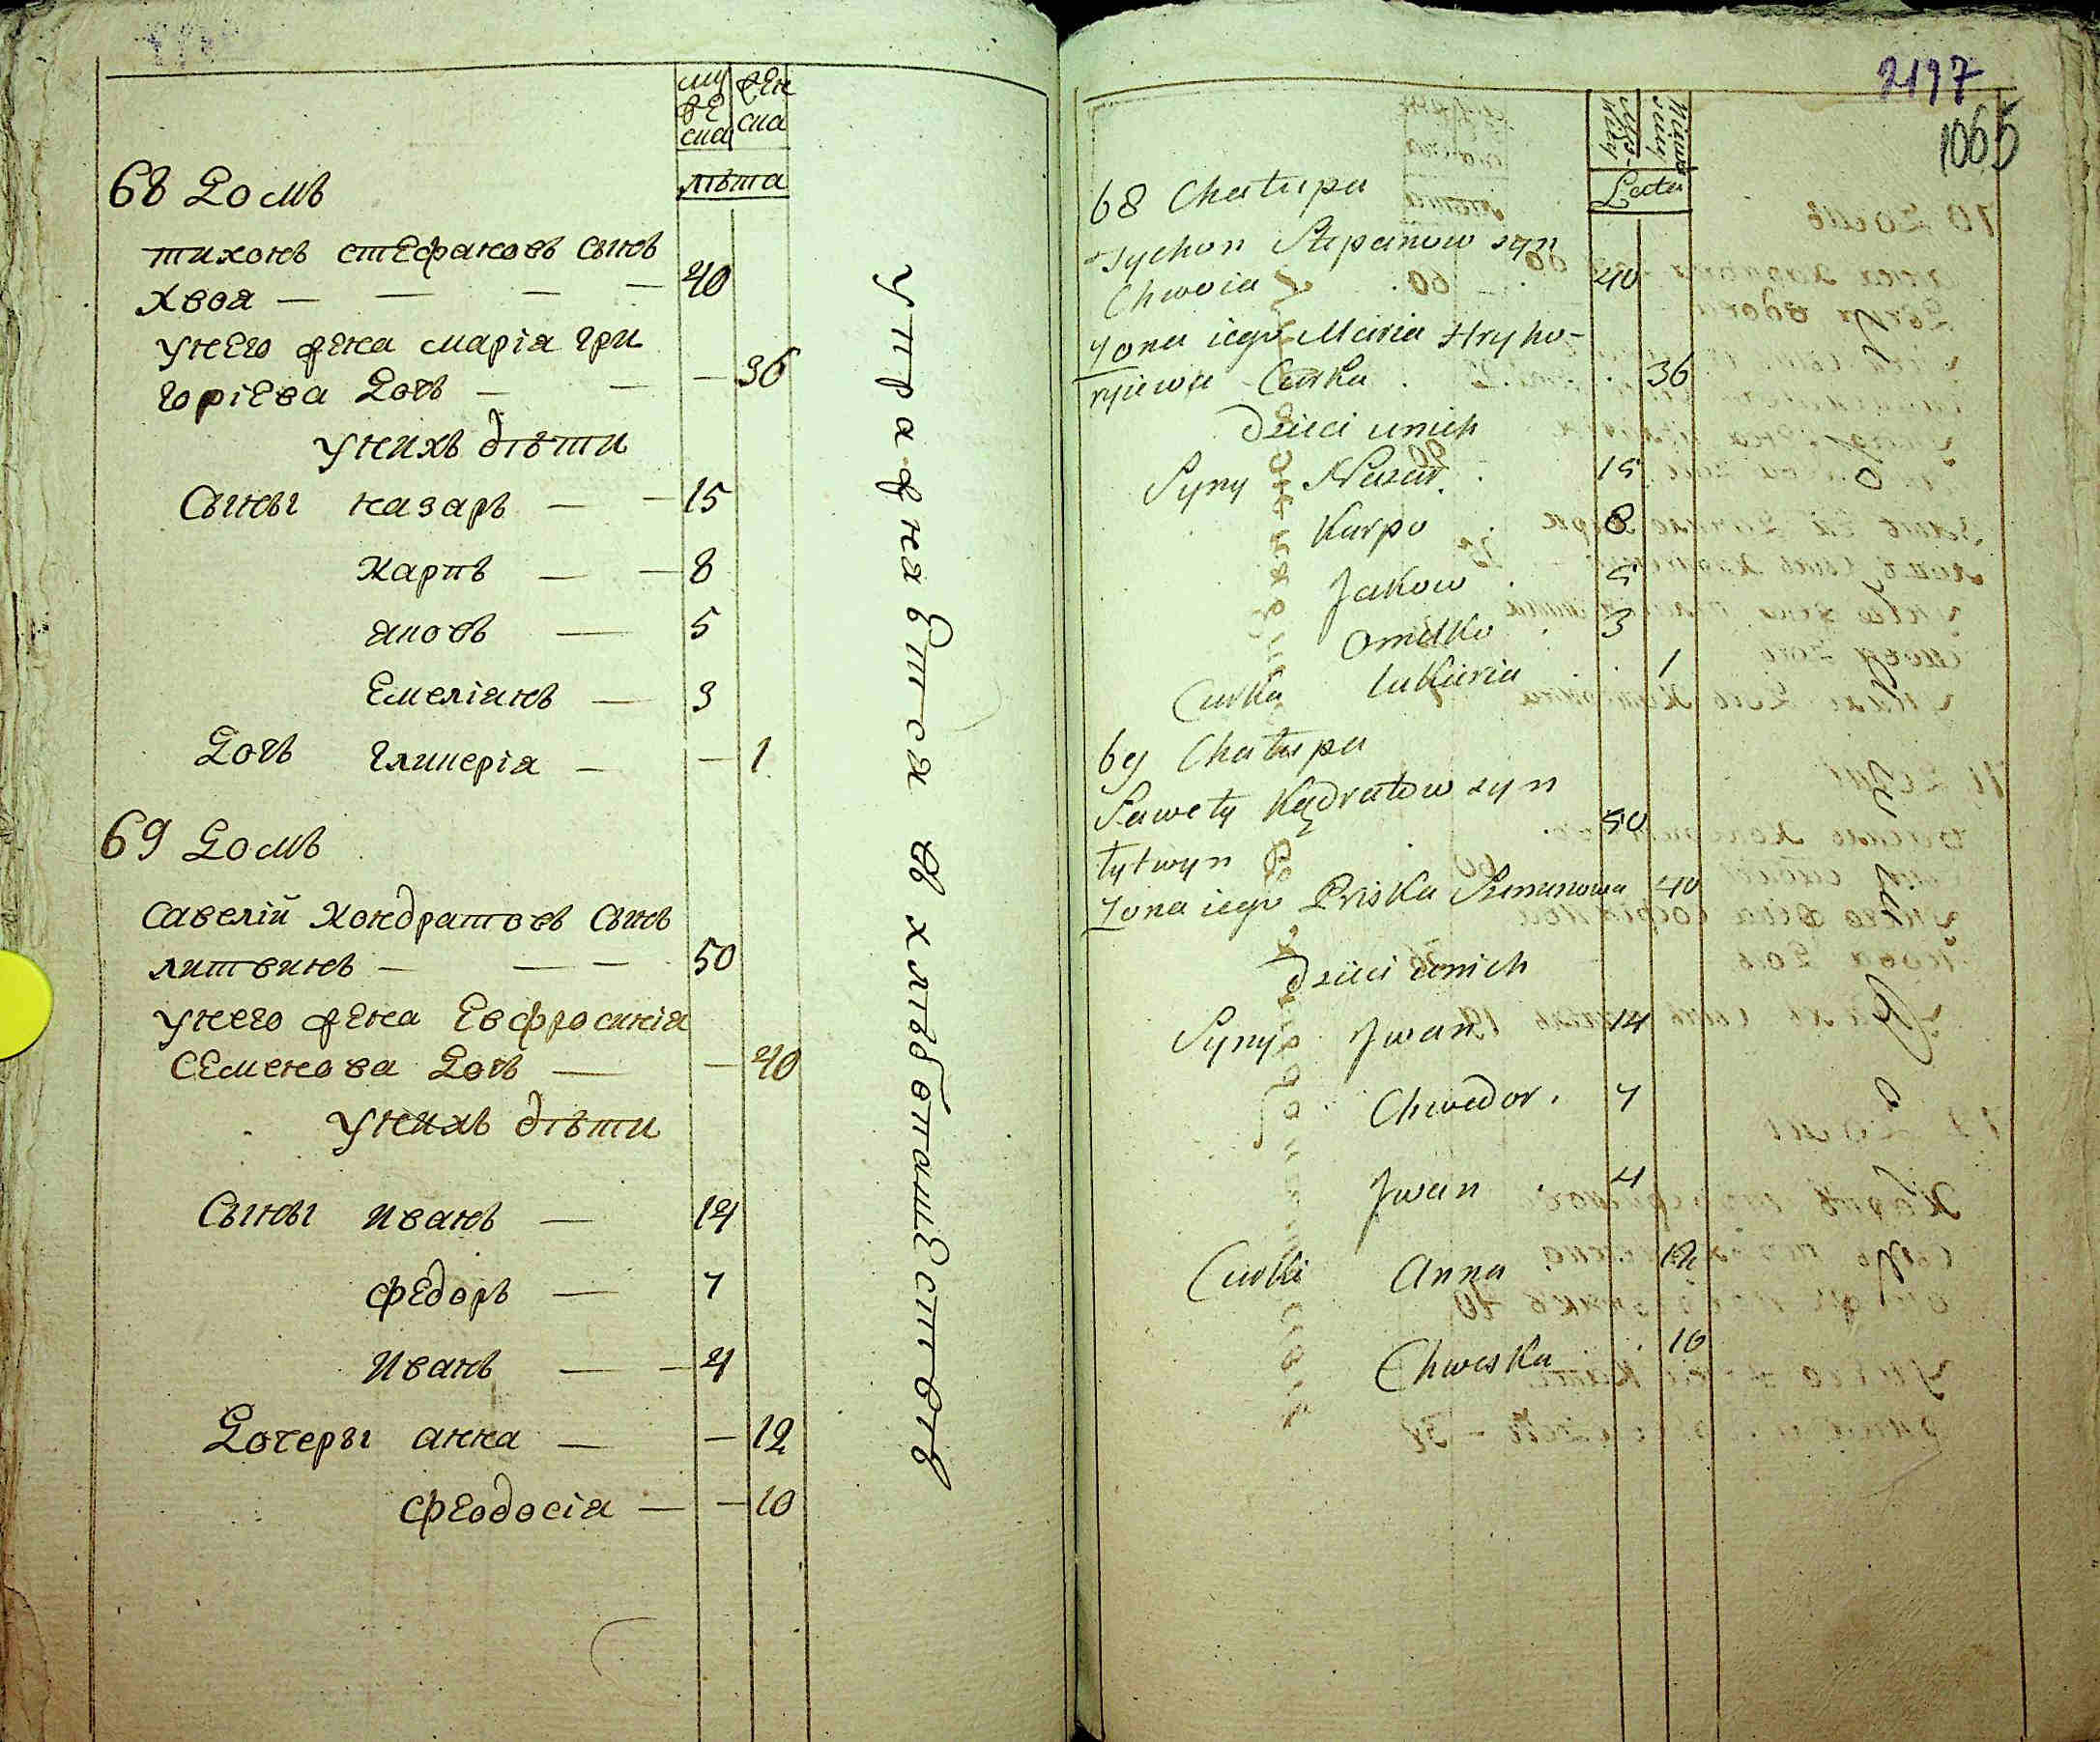 му
же
ска
жен
ска
лѣта
68 Домъ
тихонъ стефановъ сынъ
хвоя — — — — 40
унего жена марія гри
горіева Дочь — — — 36
унихъ дѣти
Сыны назаръ — — 15
карпъ — — 8
яковъ — 5
Емеліянъ — 3
Дочь гликерія — — 1
69 Домъ
савелій кондратовъ сынъ
литвинъ — — — 50
унего жена Евфросинія
семенова Дочь — — 40
унихъ дѣти
Сыны иванъ — 14
федоръ — 7
иванъ — — 4
Дочеры анна — — 12
феодосія — — 10
упражняется въ хлѣбопашествѣ
2197
1065
Lata
68 Chałupa
Tychon Stepanow syn
Chwoia 40
Żona iego Maria Hryho-
ryiewa Curka 36
Dzieci unich
Syny Nazar 15
Karpo 8
Jakow 5
Omelko 3
Curka Łukiria 1
69 Chałupa
Sawety Kądratow syn
Łytwyn 50
Żona iego Priska Semanowa 40
Dzieci unich
Syny Jwan 14
Chwedor 7
Jwan 4
Curki Anna 12
Chweska 10